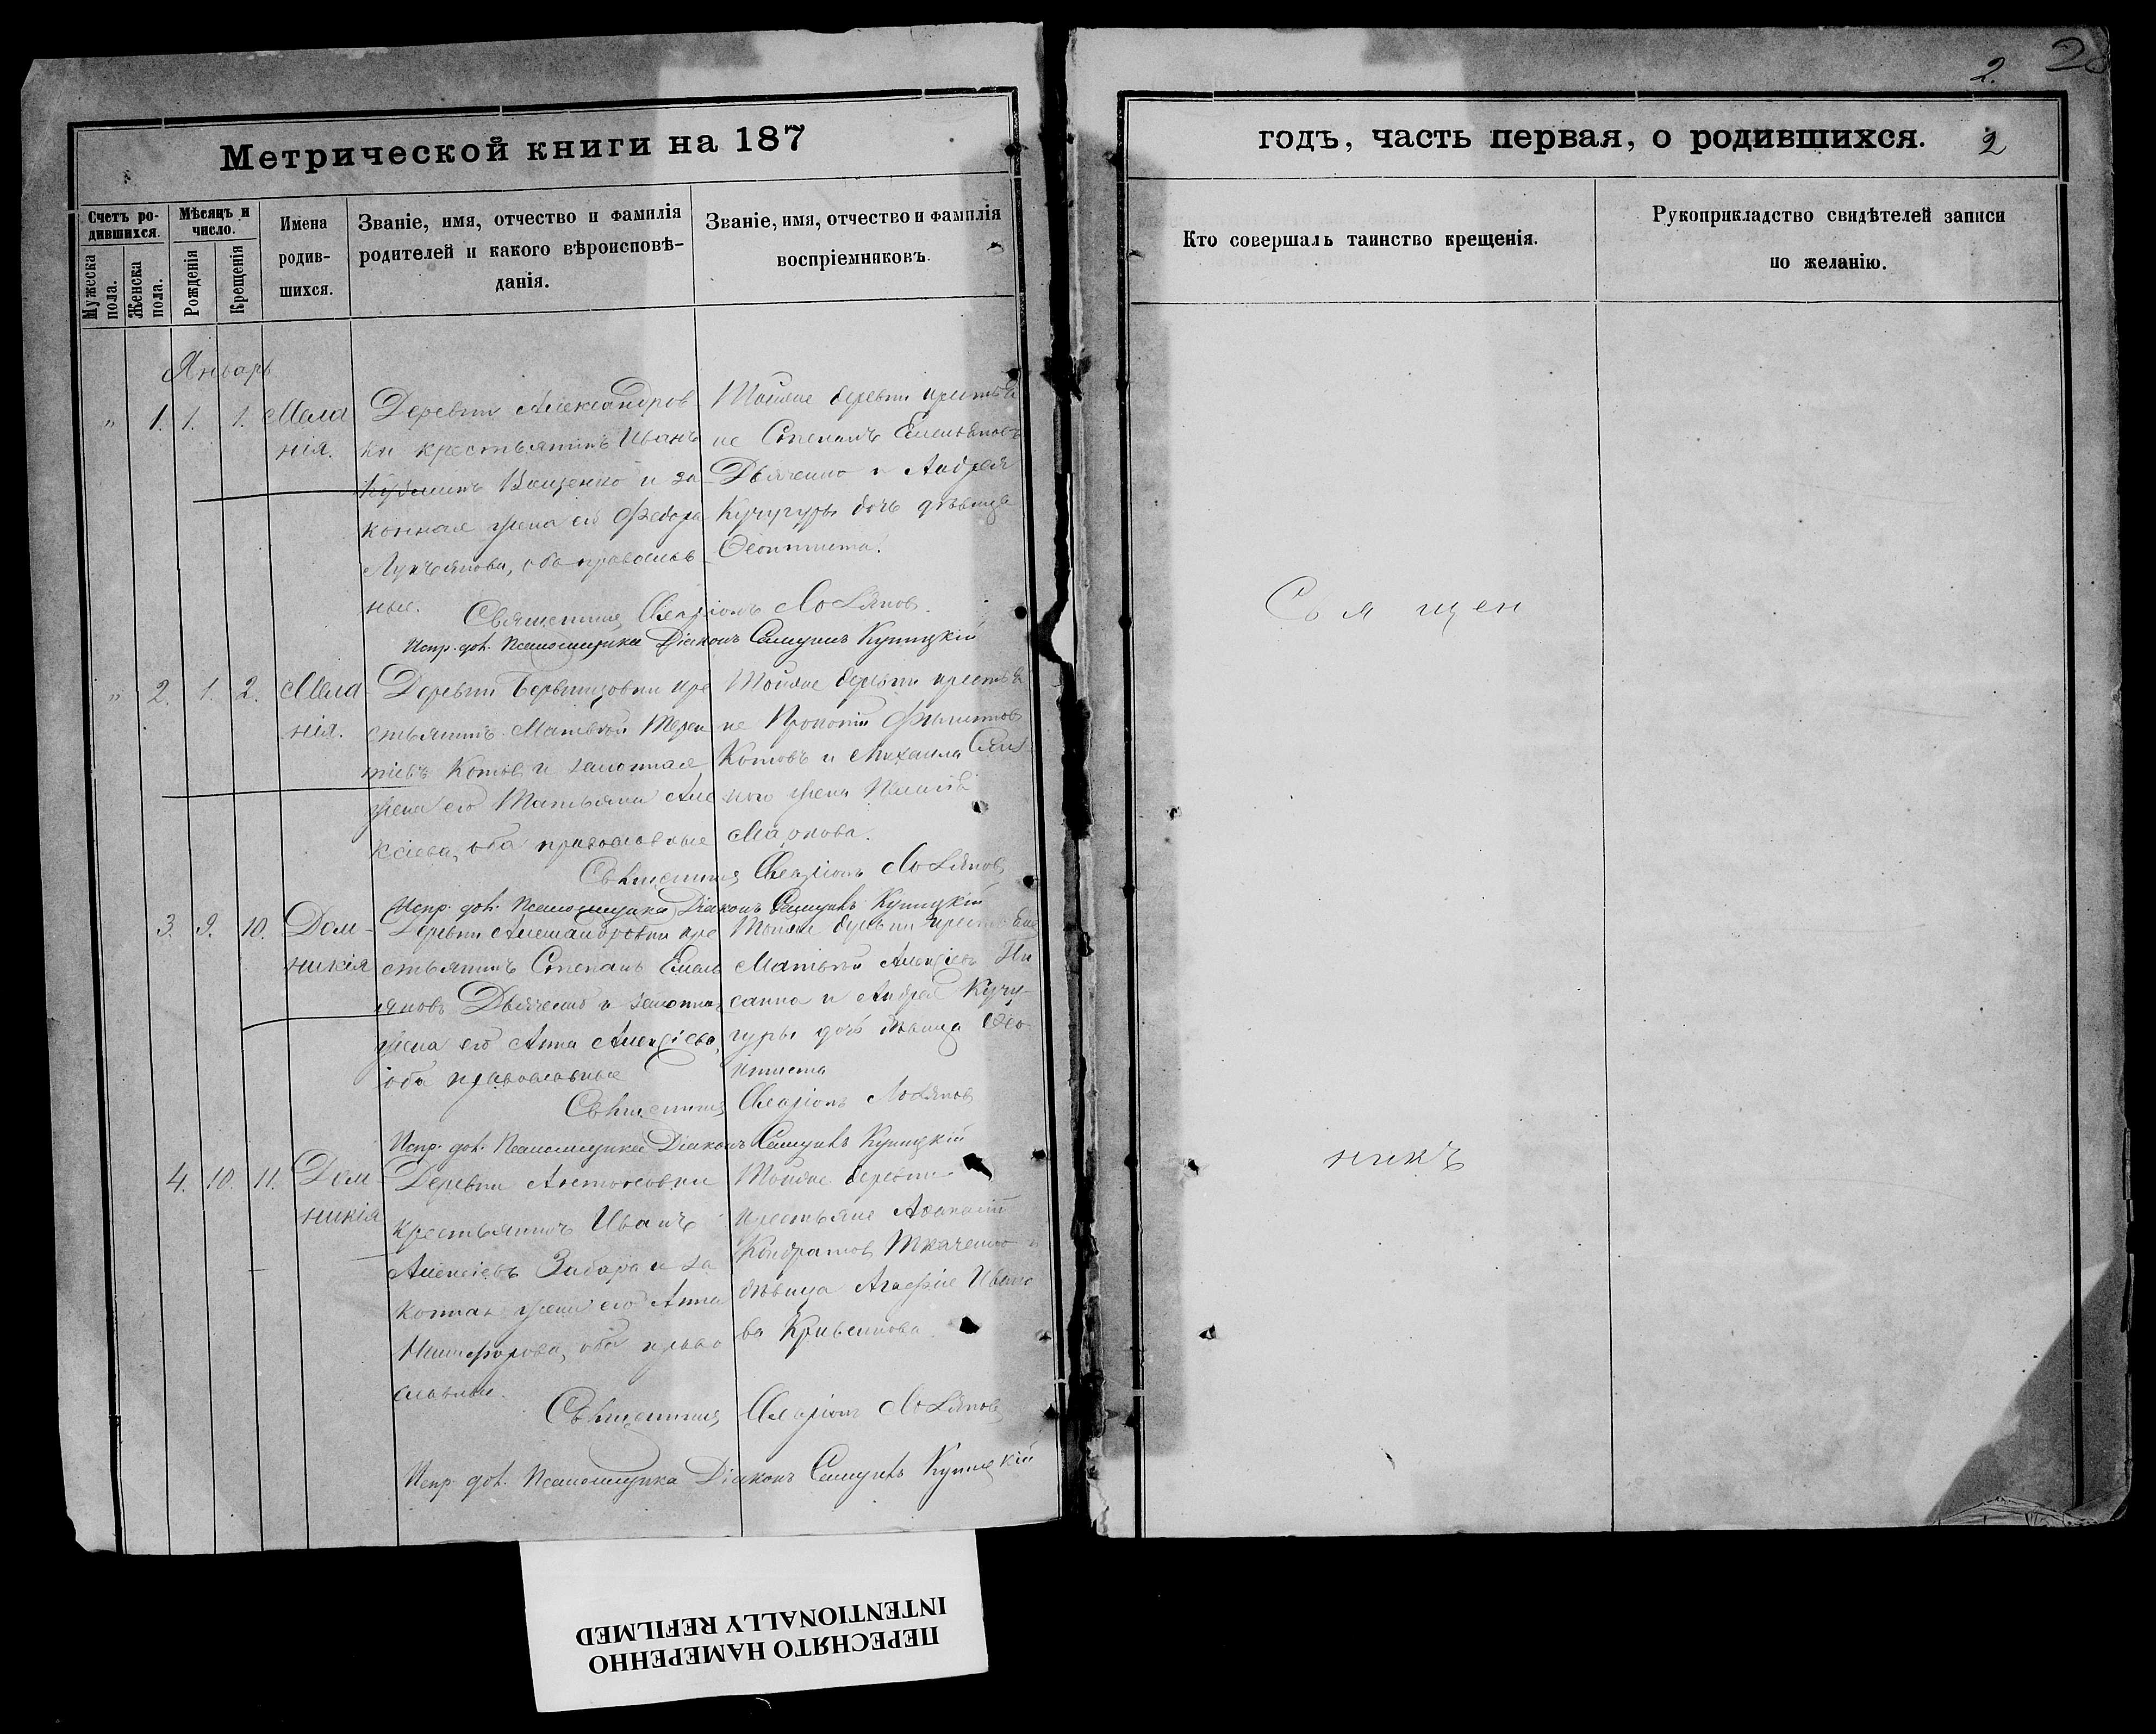 2. 2
Метрической книги на 187
годъ, часть первая, о родившихся. 2
Счетъ ро-
дившихся.
Мужеска
пола.
Женска
пола.
Мѣсяцъ и
число.
Рожденія
Крещенія
Имена
родив-
шихся.
Званіе, имя, отчество и фамилія
родителей и какого вѣроисповѣ-
данія.
Званіе, имя, отчество и фамилія
воспріемниковъ.
Кто совершалъ таинство крещенія.
Рукоприкладство свидѣтелей записи
по желанію.
Январь
" 1. 1. 1. Мела
нія.
Деревни Александров
ки крестьянинъ Иванъ
и за
конная жена его Федора
Лукъянова, оба православ
ные.
Тойже деревни крестья
не Степанъ Емельяновъ
Дьяченко и Андрея
Кучугуры дочь дѣвица
Священникъ Иларіонъ
Испр. дол. Псаломщика Діаконъ Самуилъ
" 2. 1. 2. Мела
нія.
Деревни кре
стьянинъ Матвѣй Терен
тіевъ Котовъ и законная
жена его Татьяна Але
ксіева, оба православные
Тойже деревни крестья
не Прокопій Филиповъ
Котовъ и Михаила
жена
Маркова.
Священникъ Иларіонъ
Испр. дол. Псаломщика Діаконъ Самуилъ
3. 9. 10. Дом-
никія
Деревни Александровки кре
стьянинъ Степанъ Емель
яновъ Дьяченко и законная
жена его Анна Алексіева,
оба православные
Тойже деревни
Матвѣй Алексіевъ
и Андрея Кучу-
гуры дочь дѣвица
Священникъ Иларіонъ
Испр. дол. Псаломщика Діаконъ Самуилъ
4. 10. 11. Дом-
никія
Деревни Антоновки
крестьянинъ Иванъ
Алексіевъ и за
конная жена его Анна
Никифорова, оба право
славные.
Тойже деревни
крестьяне Афанасій
Кондратовъ Ткаченко и
дѣвица Агафія Ивано
ва
Священникъ Иларіонъ
Испр. дол. Псаломщика Діаконъ Самуилъ
Священ
никъ
ПЕРЕСНЯТО НАМЕРЕННО
INTENTIONALLY REFILMED